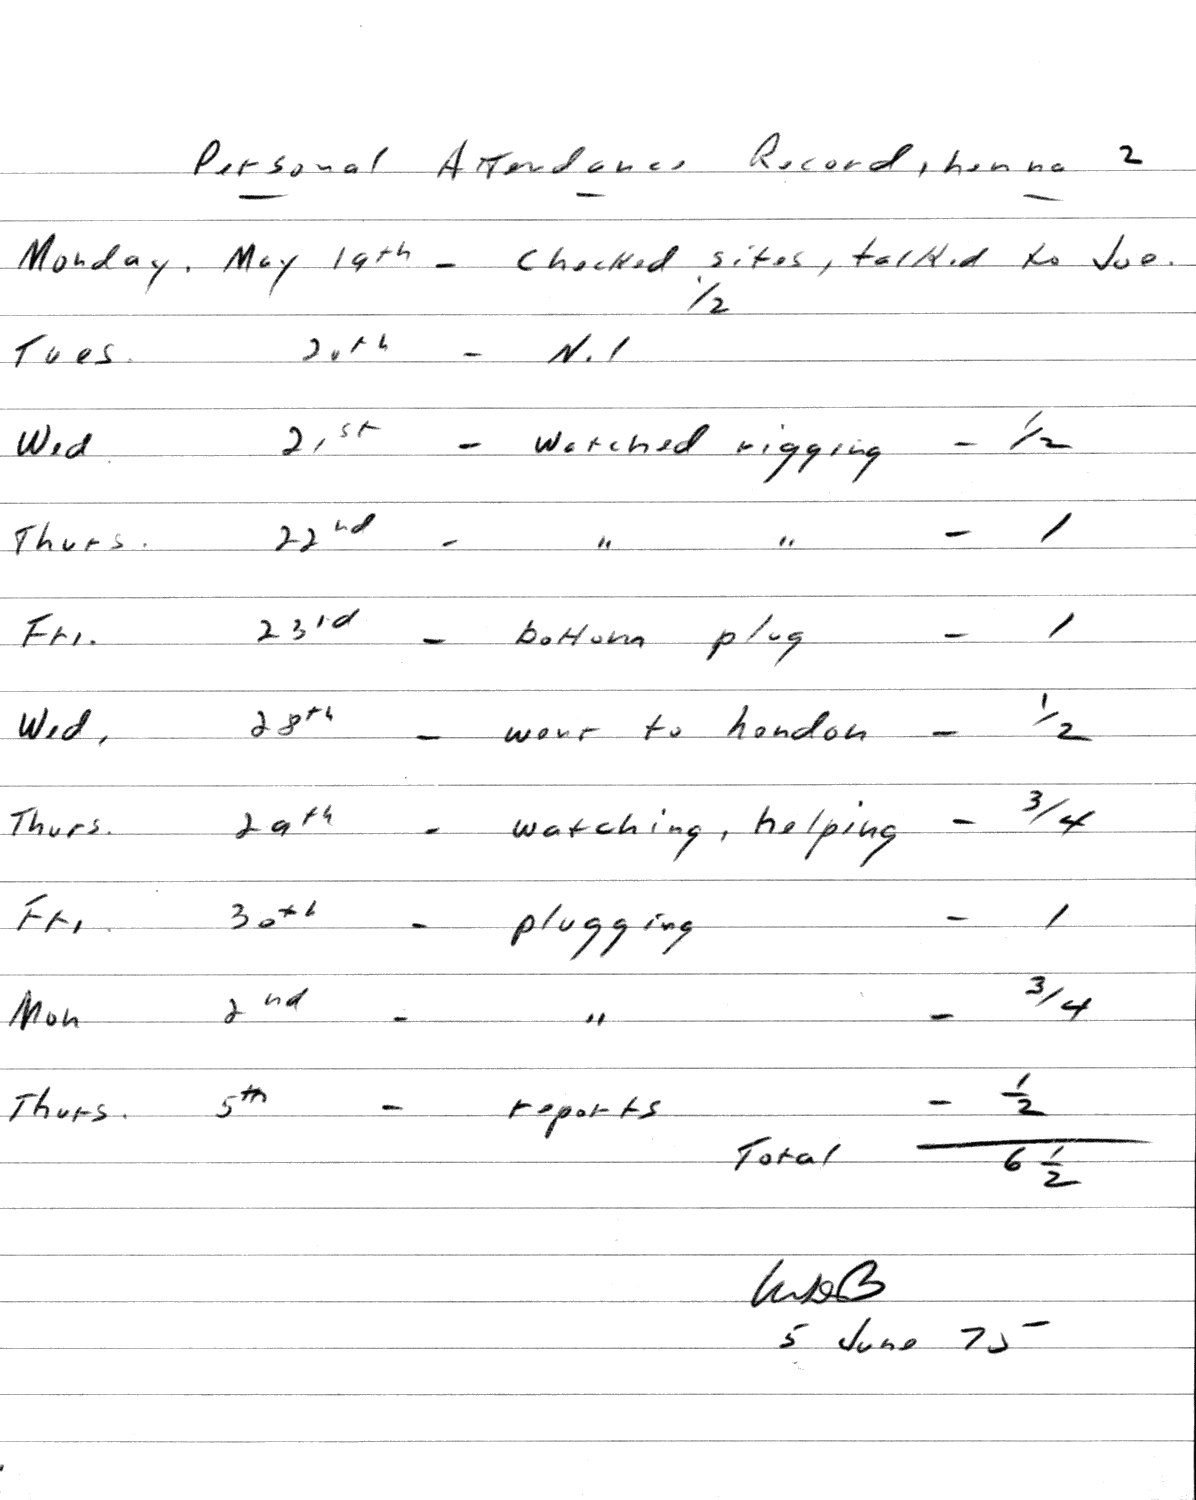 Personal Attendance Record, Lenna 2
Monday, May 19th - Checked sites, talked to Joe.
1/2
Tues. 20th - N.1
Wed 21st - Watched rigging - 1/2
Thurs. 22nd - " " - 1
Fri. 23rd - bottom plug - 1
Wed, 28th - went to London - 1/2
Thurs. 29th - watching, helping - 3/4
Fri. 30th - plugging - 1
Mon 2nd - " - 3/4
Thurs. 5th - reports - 1/2
Total 6 1/2
5 June 75